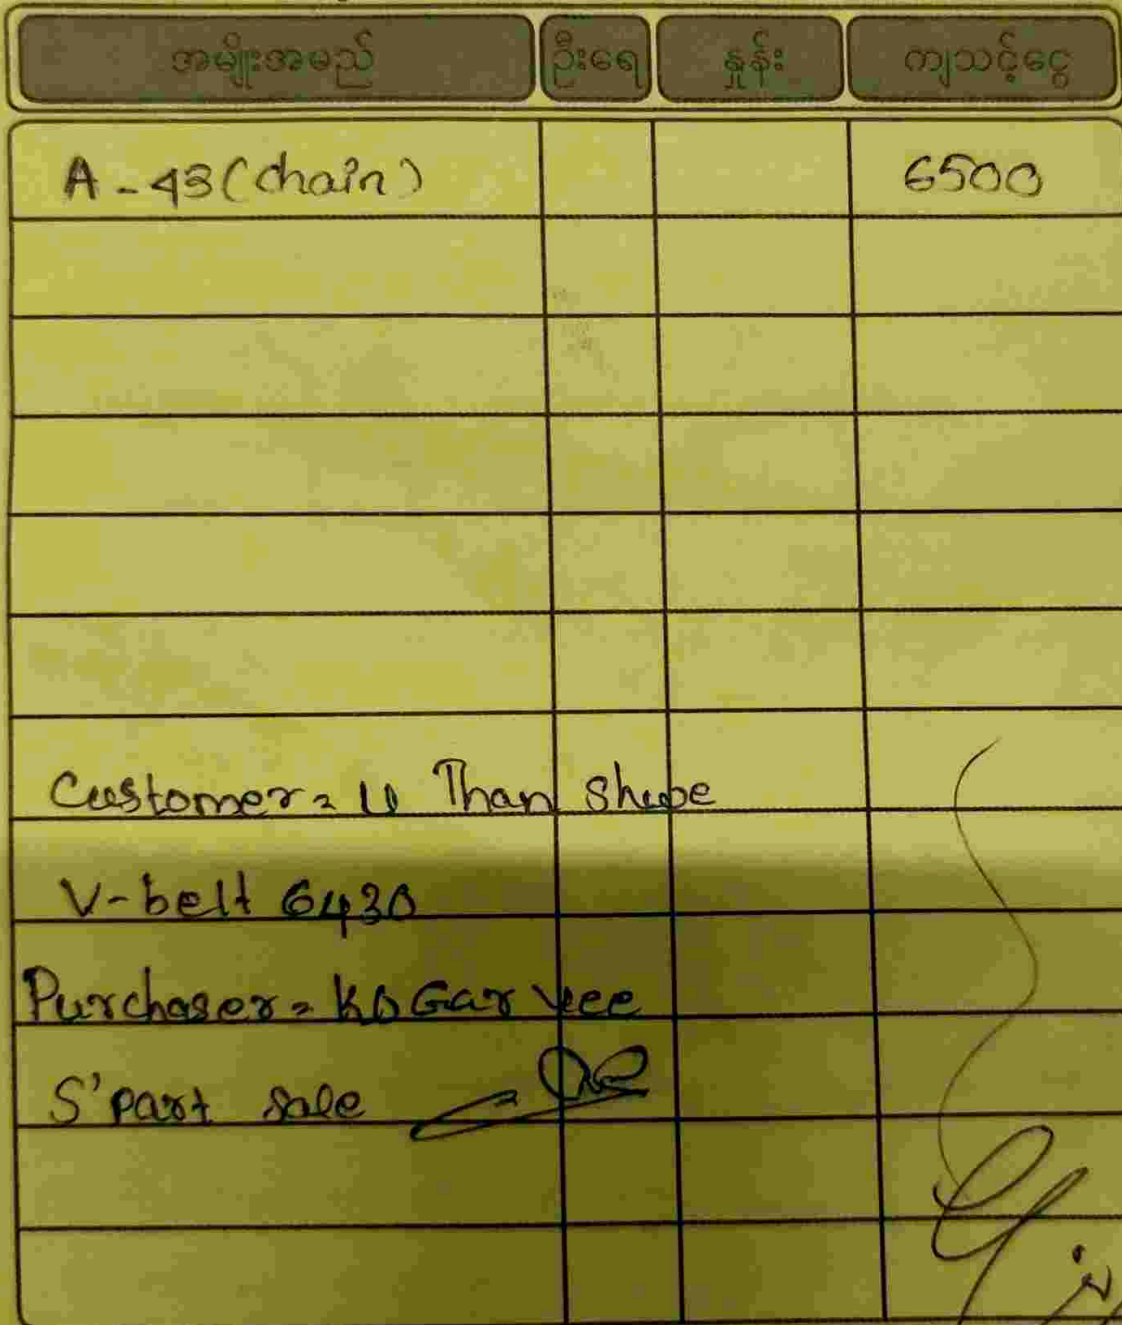 အမျိုးအမည် ဦးရေ နှုန်း ကျသင့်ငွေ
A - 43 (chain) 6500
Customer = U Than Shwe
V-belt 6430
Purchaser = Ko Gar Yee
S'part sale